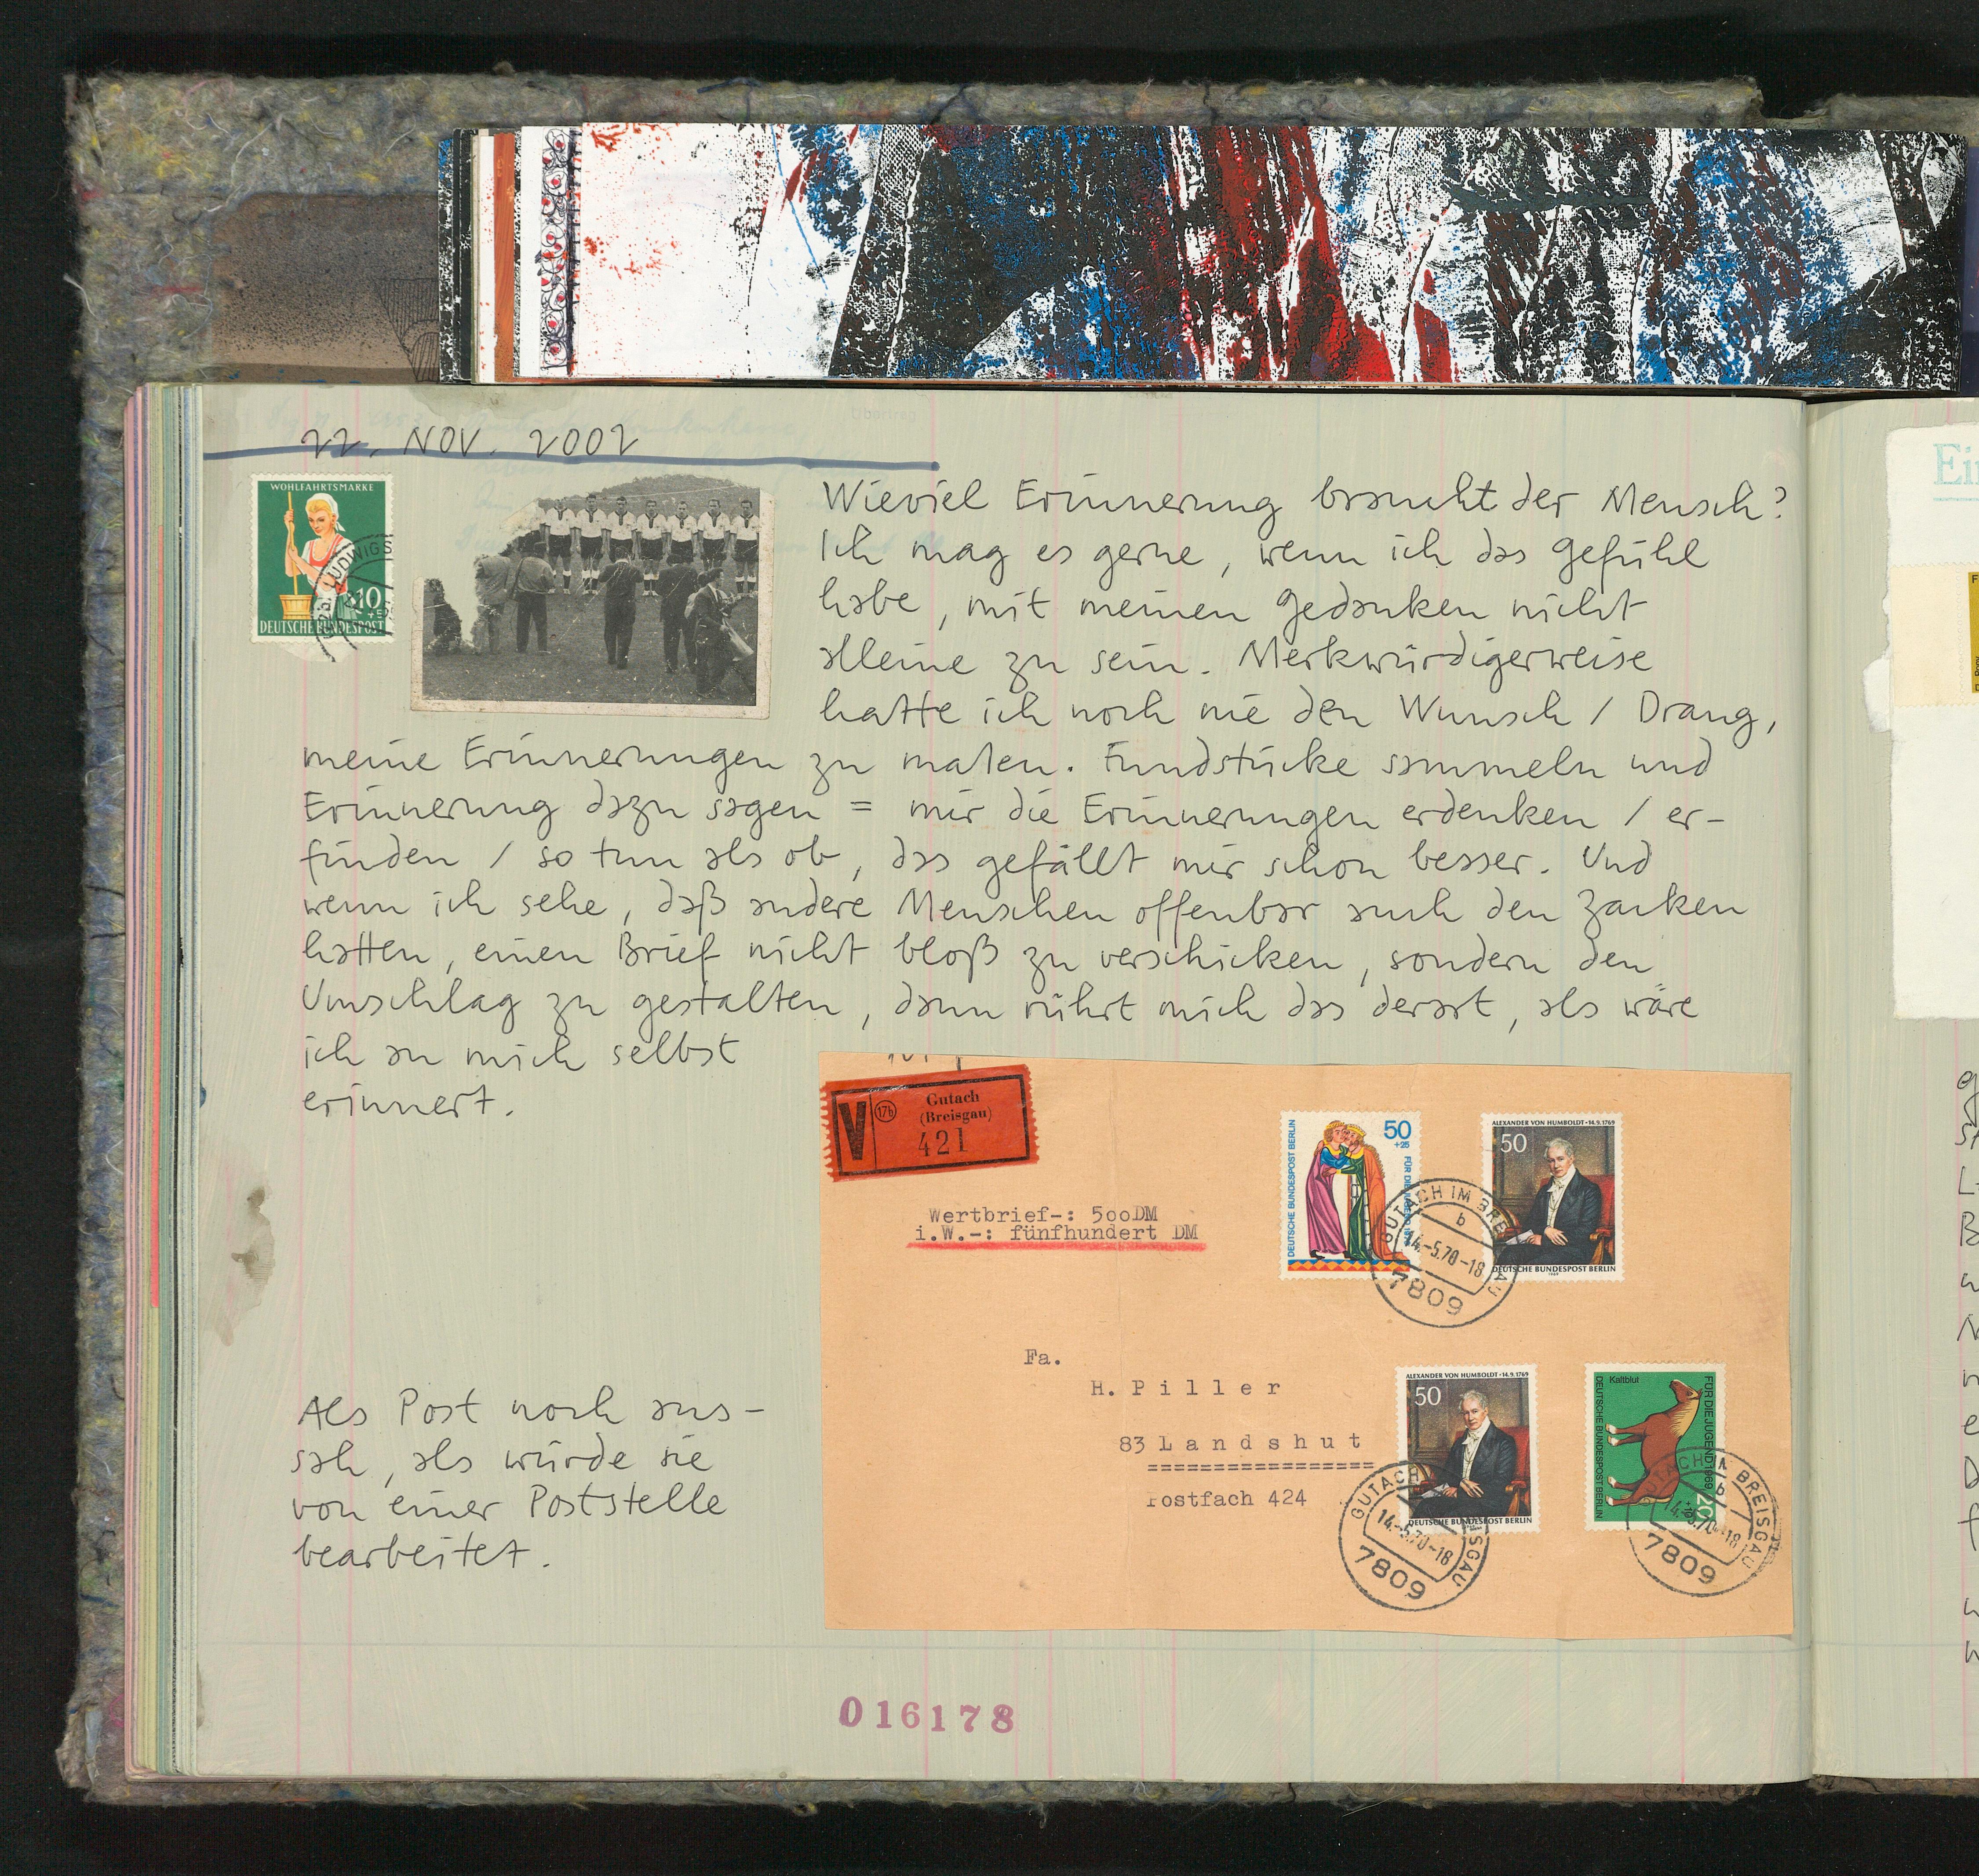 22. NOV. 2002
WOHLFAHRTSMARKE
10
DEUTSCHE BUNDESPOST
Wieviel Erinnerung braucht der Mensch?
Ich mag es gerne, wenn ich das Gefühl
habe, mit meinen Gedanken nicht
alleine zu sein. Merkwürdigerweise
hatte ich noch nie den Wunsch / Drang,
meine Erinnerungen zu malen. Fundstücke sammeln und
Erinnerung dazu sagen = mir die Erinnerungen erdenken / er-
finden / so tun als ob, das gefällt mir schon besser. Und
wenn ich sehe, daß andere Menschen offenbar auch den Zacken
hatten, einen Brief nicht bloß zu verschicken, sondern den
Umschlag zu gestalten, dann rührt mich das derart, als wäre
ich an mich selbst
erinnert.
V 17b Gutach
(Breisgau)
421
Wertbrief-: 500DM
i.W.-: fünfhundert DM
50
+25
DEUTSCHE BUNDESPOST BERLIN
ALEXANDER VON HUMBOLDT · 14.9.1769
50
DEUTSCHE BUNDESPOST BERLIN
1969
GUTACH IM BREISGAU
b
14.-5.70-18
7809
Fa.
H. Piller
83 Landshut
Postfach 424
ALEXANDER VON HUMBOLDT · 14.9.1769
50
DEUTSCHE BUNDESPOST BERLIN
GUTACH
14.-5.70-18
7809
Kaltblut
FÜR DIE JUGEND 1969
20
DEUTSCHE BUNDESPOST BERLIN
GUTACH IM BREISGAU
b
14.-5.70-18
7809
Als Post noch aus-
sah, als würde sie
von einer Poststelle
bearbeitet.
016178